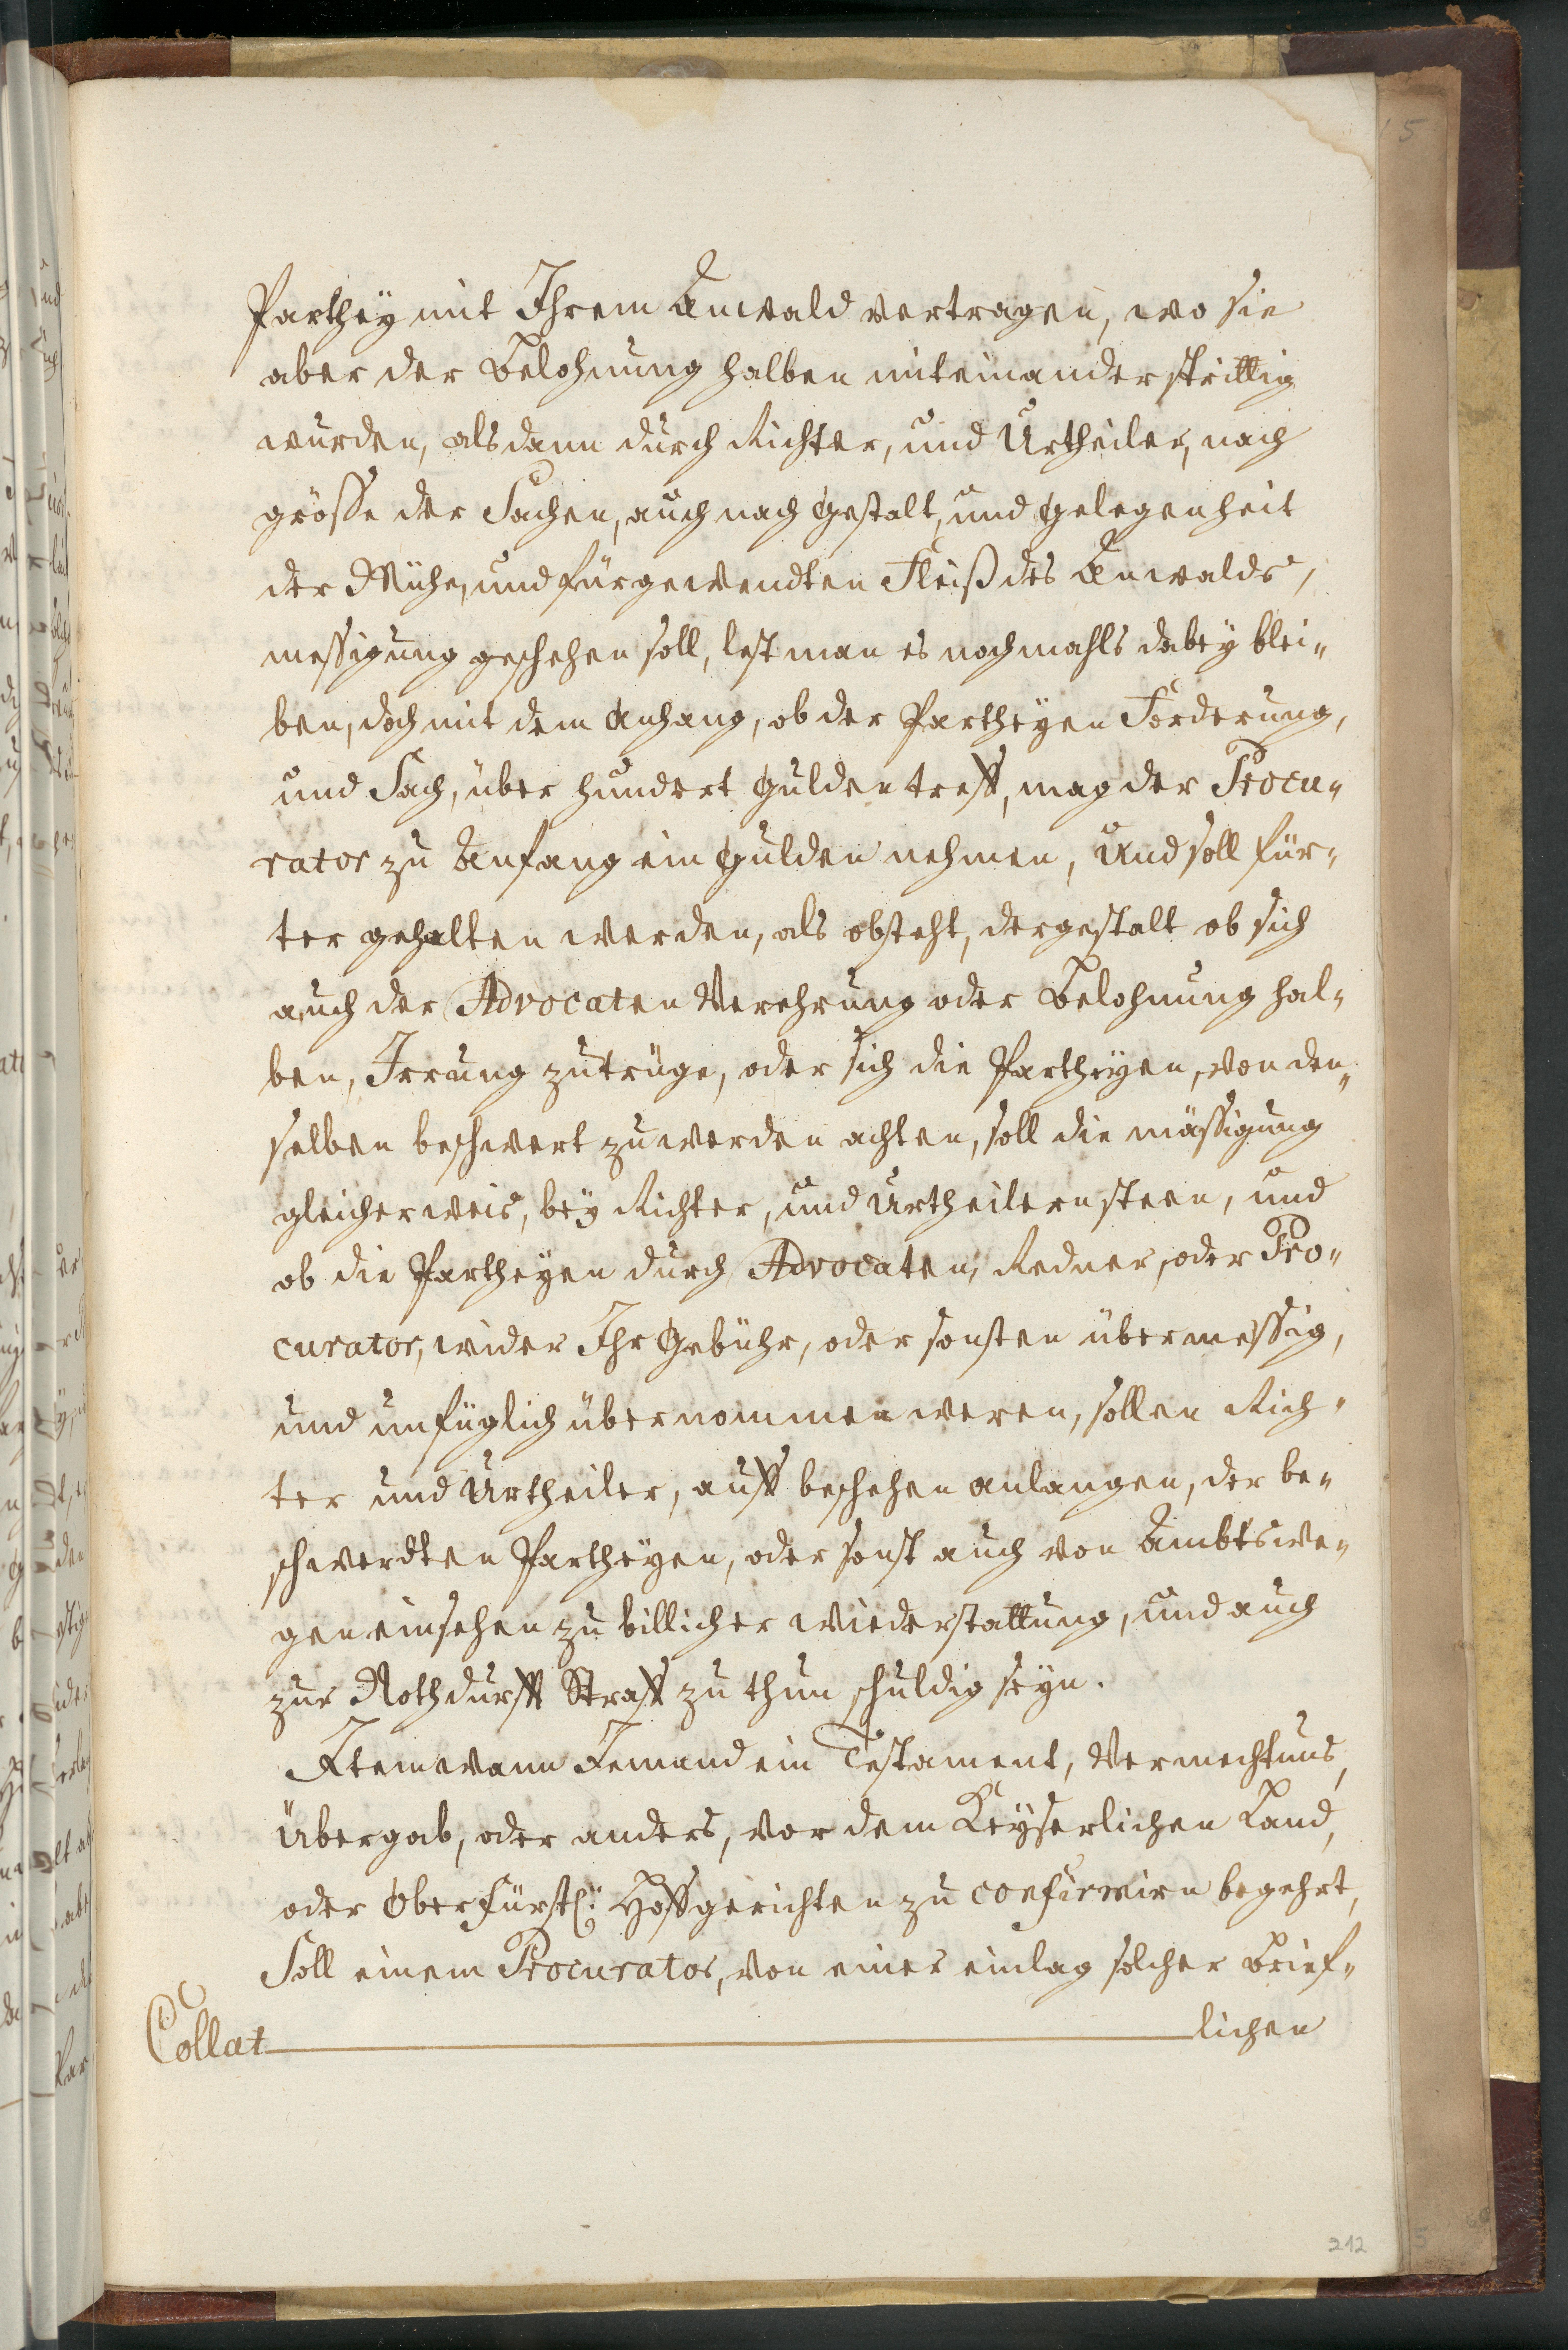 Parthey mit Ihrem Anwald vertragen, wo sie
aber der Belohnung halben miteinander strittig
wurden, alsdann durch Richter, und Urtheiler, nach
grösse der Sachen, auch nach Gestalt, und Gelegenheit
der Mühe, und fürgewendten Fleiß des Anwalds,
messigung geschehen soll, lest man es nochmahls dabey blei„
ben, doch mit dem Anhang, ob der Partheyen Forderung,
und Sach, über hundert Gulden treff, mag der Procu„
rator zu Anfang ein Gulden nehmen, Und soll für„
ter gehalten werden, als obsteht, dergestalt ob sich
auch der Advocaten Verehrung oder Belohnung hal„
ben, Irrung zutrüge, oder sich die Partheyen, von den„
selben beschwert zu werden achten, soll die mässigung
gleicherweis, bey Richter, und Urtheilern steen, und
ob die Partheyen durch Advocaten, Redner, oder Pro„
curator, wider Ihr Gebühr, oder sonsten übermessig,
und unfüglich übernommen weren, sollen Rich„
ter und Urtheiler, auff beschehen anlangen, der be„
schwerdten Partheyen, oder sonst auch von Ambtswe„
gen einsehen zu billicher Wiederstattung, und auch
zur Nothdurfft Straff zu thun schuldig seyn.
Item wann Jemand ein Testament, Vermechtnus,
Übergab, oder anders, vor dem Keyserlichen Land,
oder Ober Fürstl: Hoffgerichten zu confirmirn begehrt,
Soll einem Procurator, von einer einlag solcher Brief„
Collat lichen
212